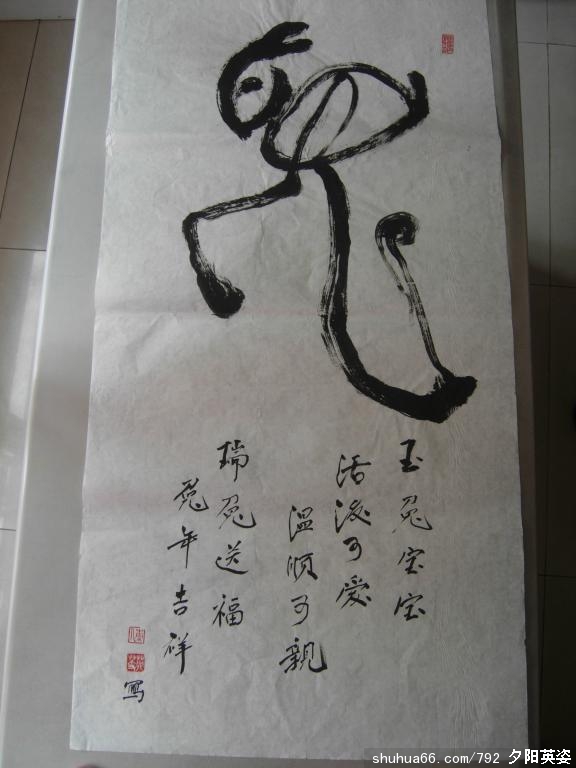 兔
玉兔宝宝
活泼可爱
温顺可親
瑞兔送福
兔年吉祥
寫
shuhua66.com/792 夕阳英姿